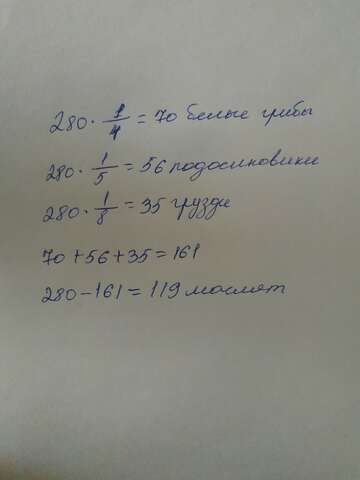 280 · 1/4 = 70 белые грибы
280 · 1/5 = 56 подосиновики
280 · 1/8 = 35 грузди
70 + 56 + 35 = 161
280 - 161 = 119 маслят